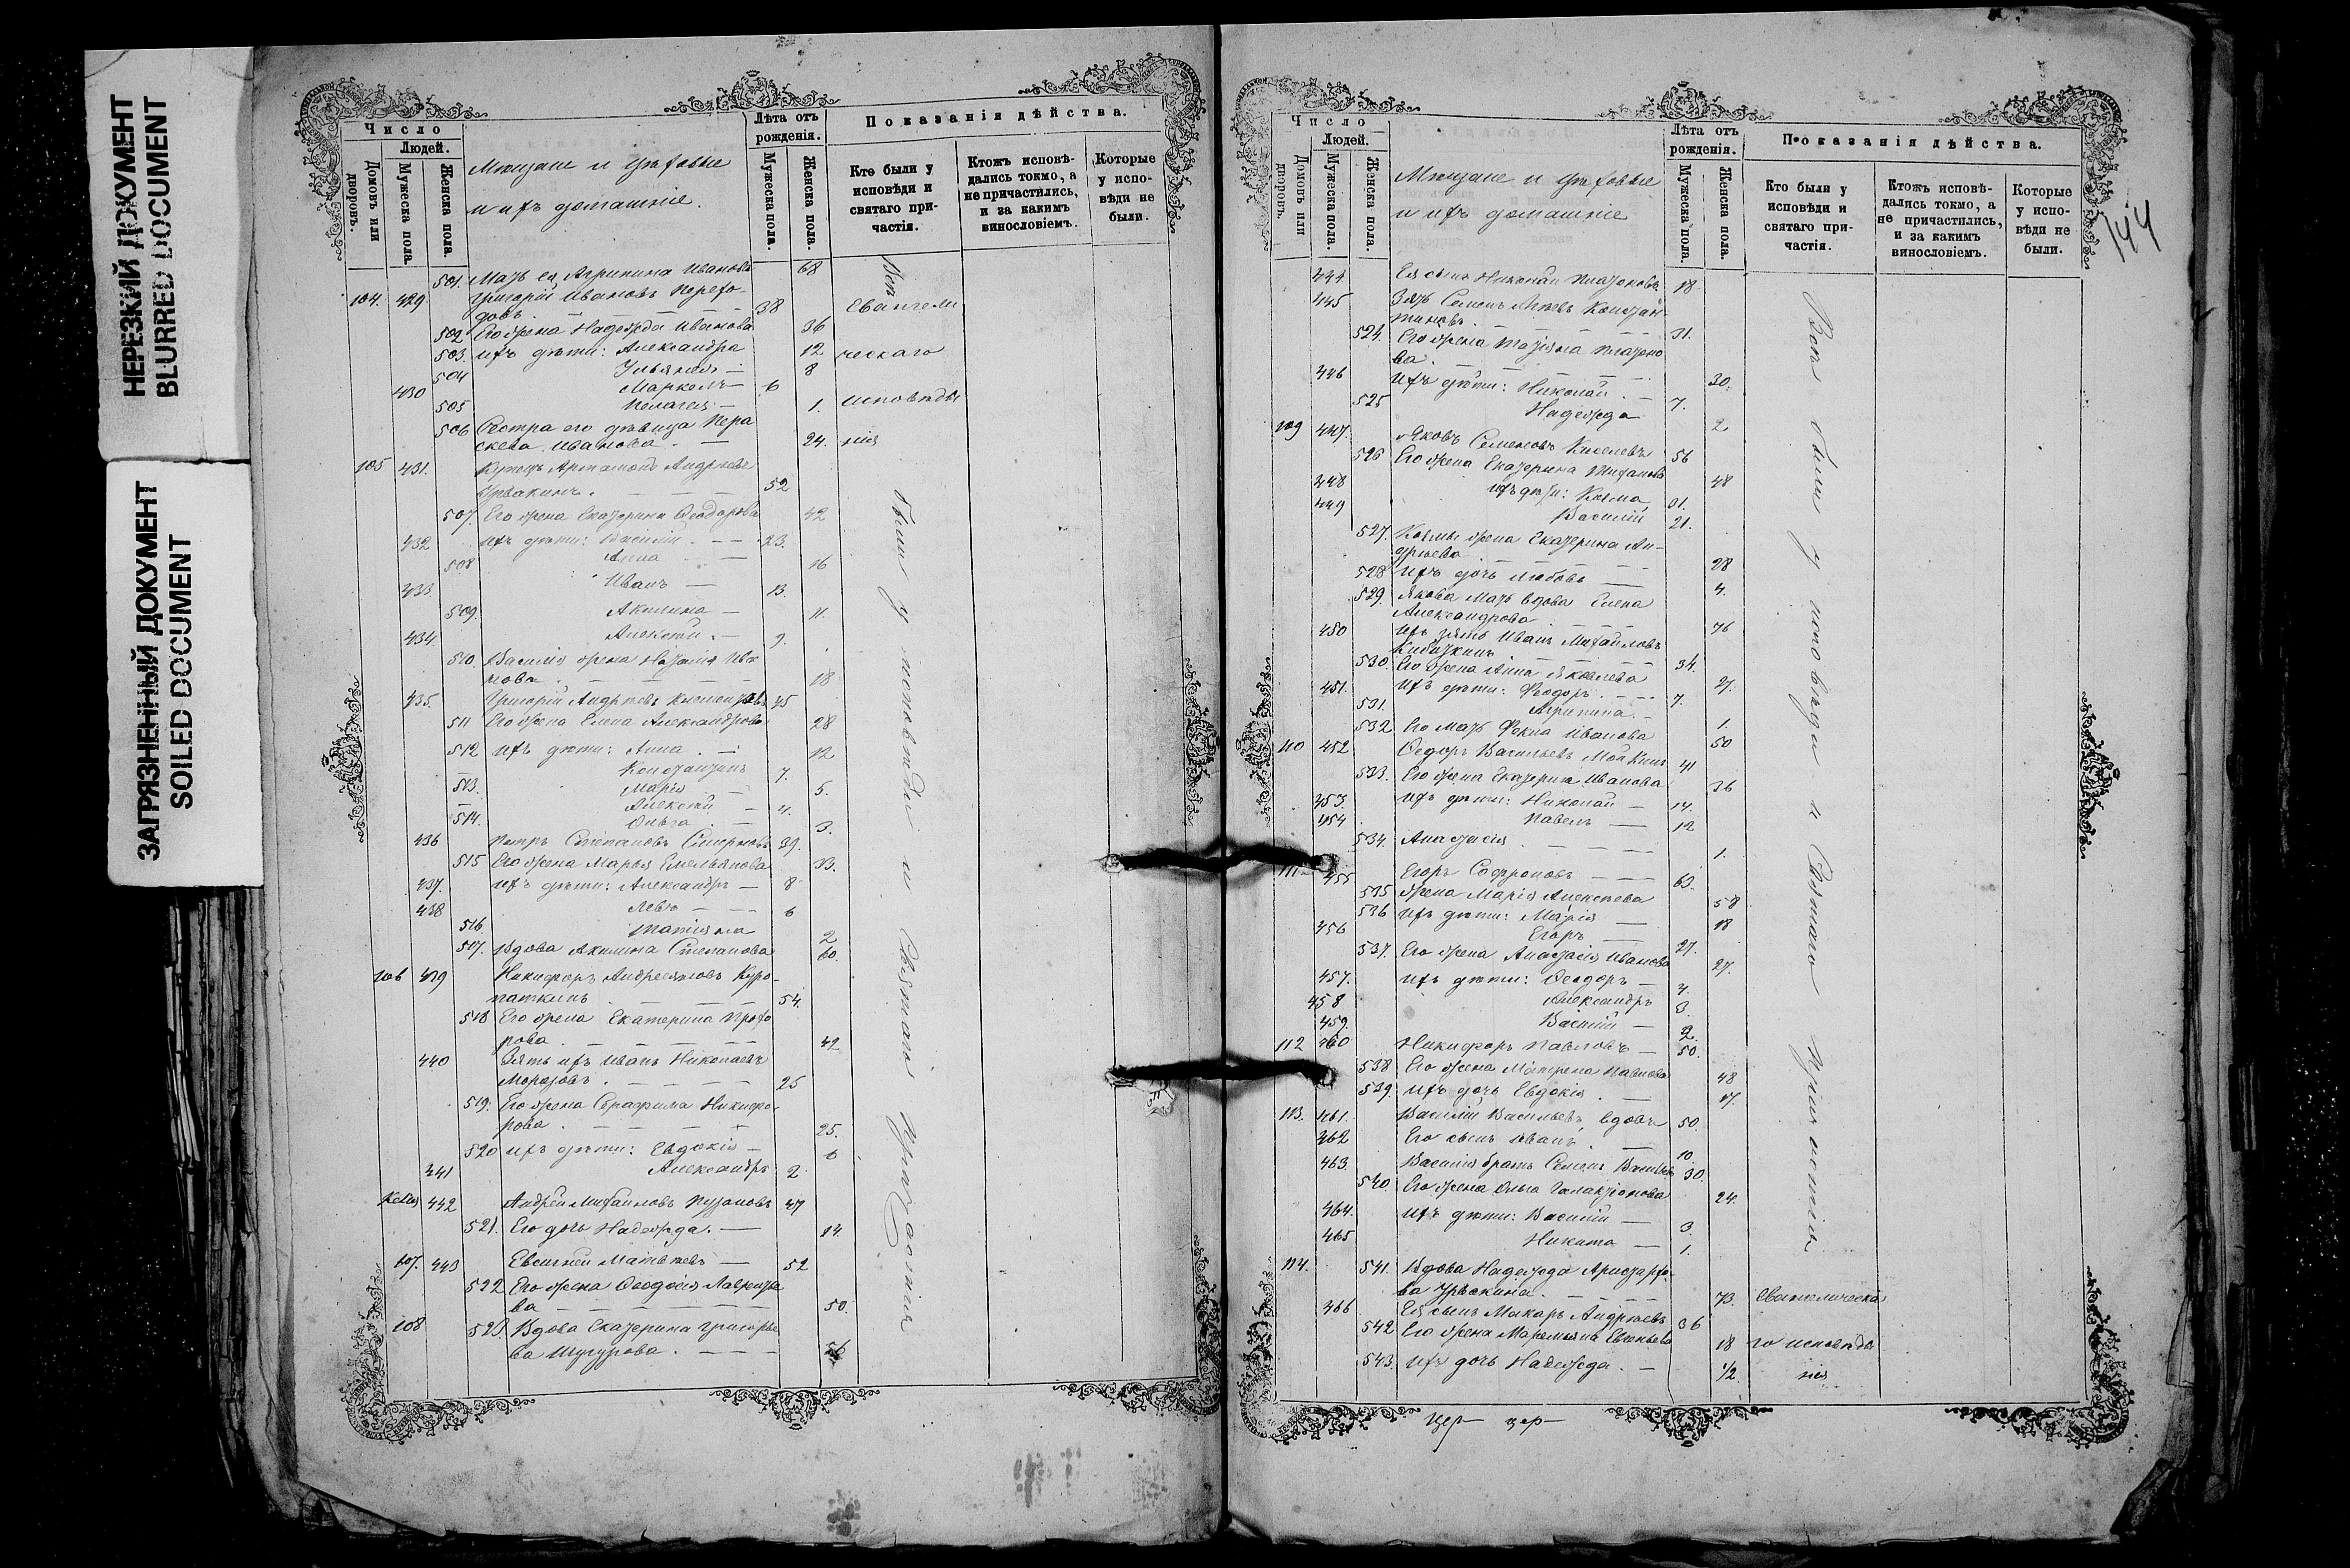 НЕРЕЗКИЙ ДОКУМЕНТ
BLURRED DOCUMENT
ЗАГРЯЗНЕННЫЙ ДОКУМЕНТ
SOILED DOCUMENT
Число
Людей.
Домовъ или дворовъ.
Мужеска пола.
Женска пола.
Мѣщане и цѣховые
и ихъ домашніе.
Лѣта отъ рожденія.
Мужеска пола.
Женска пола.
Показанія дѣйства.
Кто были у исповѣди и святаго причастія.
Ктожъ исповѣдались токмо, а не причастились, и за какимъ винословіемъ.
Которые у исповѣди не были.
501. Мать ея Агрипина Иванова 68
104. 429 Григорій Ивановъ Перехо-
довъ. 38
502 Его жена Надежда Иванова 36
503. ихъ дѣти: Александра 12
504 Ульянія 8
430 Маркелъ 6
505 Пелагея 1.
506 Сестра его дѣвица Пара
скева Иванова. 24.
105 431. Купецъ Артамонъ Андреевъ
Урвакинъ. 52
507. Его жена Екатерина Ѳеодорова 42
432 ихъ дѣти: Василій 23.
508 Анна 16
433. Иванъ 13.
509. Акилина 11.
434. Алексѣй 9.
510. Василія жена Наталія Ива
нова. 18
435. Григорій Андреевъ 45
511 Его жена Елена Александрова 28
512 ихъ дѣти: Анна 12
Константинъ 7.
513. Марія 5.
Алексѣй 4.
514. Ольга 3.
436 Петръ Степановъ Смирновъ 39.
515 Его жена Марья Емельянова 33.
437. ихъ дѣти: Александръ 8
438 Левъ 6
516 Татіяна 2
517. Вдова Акилина Степанова 60.
106 439 Никифоръ Андреяновъ Куро-
паткинъ 54.
518 Его жена Екатерина Прохо
рова. 42
440 Зять ихъ Иванъ Николаевъ
Морозовъ. 25
519. Его жена Серафима Никифо-
рова. 25.
520 ихъ дѣти: Евдокія 6
441 Александръ 2
442 Андрей Михайловъ Пузановъ 47
521. Его дочь Надежда. 14.
107. 443 Евсигней Матвѣевъ 52
522 Его жена Ѳеодосія Лаврентье
ва 50.
108 523. Вдова Екатерина Григорье
ва Шугурова. 56
Всѣ
Евангели
ческаго
исповѣда
нія
Были у исповѣди и Святаго Причастія
Число
Людей.
Домовъ или дворовъ.
Мужеска пола.
Женска пола.
Мѣщане и цѣховые
и ихъ домашніе
Лѣта отъ рожденія.
Мужеска пола.
Женска пола.
Показанія дѣйства.
Кто были у исповѣди и святаго причастія.
Ктожъ исповѣдались токмо, а не причастились, и за какимъ винословіемъ.
Которые у исповѣди не были.
144
444. Ея сынъ Николай Платоновъ 18.
445 Зять Семенъ Констан-
тиновъ. 31.
524. Его жена Татіяна Плато
ва. 30.
446 ихъ дѣти: Николай 7.
525 Надежда 2
109 447. Яковъ Семеновъ Киселевъ 56
526 Его жена Екатерина 48
448 ихъ дѣти: Козма 31.
449 Василій 21.
527. Козмы жена Екатерина Ан-
дреева 28
528 ихъ дочь Любовь 4.
529. Якова мать вдова Елена
Александрова 76
450 ихъ зять Иванъ Михайловъ
34.
530. Его жена Анна Яковлева 27.
451. ихъ дѣти: Ѳеодоръ 7.
531. Агрипина. 1.
532 Его мать Фекла Иванова 50
110 452 Ѳедоръ Васильевъ 41
533. Его жена Екатерина Иванова 36
453. ихъ дѣти: Николай 14.
454 Павелъ 12
534. Анастасія 1.
111 455 Егоръ Софроновъ 63.
535 Жена Марія Алексѣева 58
536 ихъ дѣти: Марія 18
456 Егоръ 27.
537. Его жена Анастасія Иванова 27.
457. ихъ дѣти: Ѳеодоръ 4.
458 Александръ 3.
459. Василій 2.
112 460 Никифоръ Павловъ 50.
538 Его жена Матрена Павлова 48
539. ихъ дочь Евдокія 17.
113. 461. Василій Васильевъ, вдовъ 50.
462 Его сынъ Иванъ 10
463. Василія братъ Семенъ Васильевъ 30.
540. Его жена Ольга Галактіонова 24.
464. ихъ дѣти: Василій 3.
465 Никита 1.
114. 541. Вдова Надежда Аристархо-
ва Урвакина. 73.
466 Ея сынъ Макаръ Андреевъ 36
542 Его жена 18
543. ихъ дочь Надежда 1/2.
Всѣ были у исповѣди и Святаго Причастія
Евангелическа
го исповѣда
нія